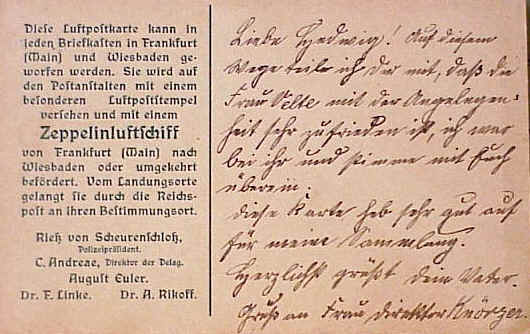 Diese Luftpostkarte kann in
jeden Briefkasten in Frankfurt
(Main) und Wiesbaden ge-
worfen werden. Sie wird auf
den Postanstalten mit einem
besonderen Luftpoststempel
versehen und mit einem
Zeppelinluftschiff
von Frankfurt (Main) nach
Wiesbaden oder umgekehrt
befördert. Vom Landungsorte
gelangt sie durch die Reichs-
post an ihren Bestimmungsort.
Rieß von Scheurenschloß,
Polizeipräsident.
C. Andreae, Direktor der Delag.
August Euler.
Dr. F. Linke. Dr. A. Rikoff.
Liebe Hedwig! Auf diesem
Wege teile ich dir mit, daß die
Frau Velte mit der Angelegen=
heit sehr zufrieden ist, ich war
bei ihr und stimme mit Euch
überein.
diese Karte heb sehr gut auf
für meine Sammlung.
Herzlichst grüßt dein Vater.
Gruß an Frau Direktor Knörzer.